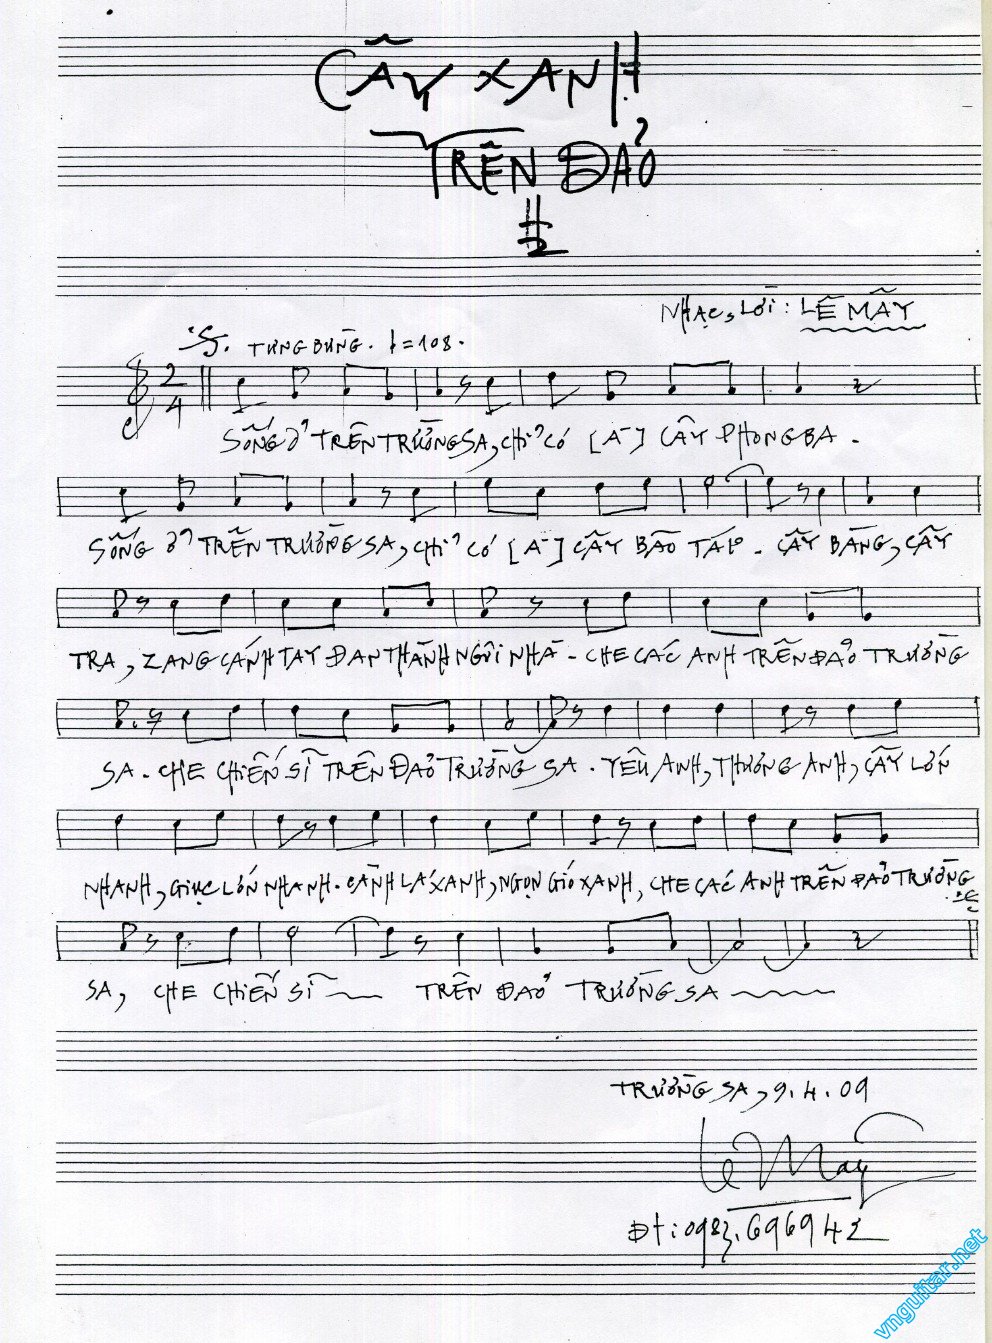 CÂY XANH
TRÊN ĐẢO
NHẠC, LỜI: LÊ MÂY
TƯNG BỪNG. ♩=108.
2
4
SỐNG Ở TRÊN TRƯỜNG SA, CHỈ CÓ [À] CÂY PHONG BA.
SỐNG Ở TRÊN TRƯỜNG SA, CHỈ CÓ [À] CÂY BÃO TÁP. CÂY BÀNG, CÂY
TRA, ZANG CÁNH TAY ĐAN THÀNH NGÔI NHÀ. CHE CÁC ANH TRÊN ĐẢO TRƯỜNG
SA. CHE CHIẾN SĨ TRÊN ĐẢO TRƯỜNG SA. YÊU ANH, THƯƠNG ANH, CÂY LỚN
NHANH, GIỤC LỚN NHANH. CÀNH LÁ XANH, NGỌN GIÓ XANH, CHE CÁC ANH TRÊN ĐẢO TRƯỜNG
SA, CHE CHIẾN SĨ TRÊN ĐẢO TRƯỜNG SA
TRƯỜNG SA, 9.4.09
Lê Mây
Đt: 0983.696942
vnguitar.net